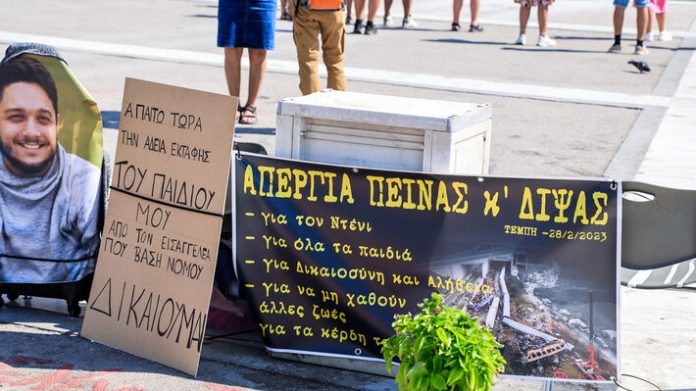 ΑΠΑΤΩ ΤΩΡΑ
ΤΗΝ ΑΔΕΙΑ ΕΚΤΑΦΗΣ
ΤΟΥ ΠΑΙΔΙΟΥ
ΜΟΥ
ΑΠΟ ΤΟΝ ΕΙΣΑΓΓΕΛΕΑ
ΠΟΥ ΒΑΣΗ ΝΟΜΟΥ
ΔΙΚΑΙΟΥΜΑΙ
ΑΠΕΡΓΙΑ ΠΕΙΝΑΣ κ' ΔΙΨΑΣ
ΤΕΜΠΗ -28/2/2023
- για τον Ντένι
- για όλα τα παιδιά
- για Δικαιοσύνη και Αλήθεια
- για να μη χαθούν
άλλες ζωές
για τα κέρδη